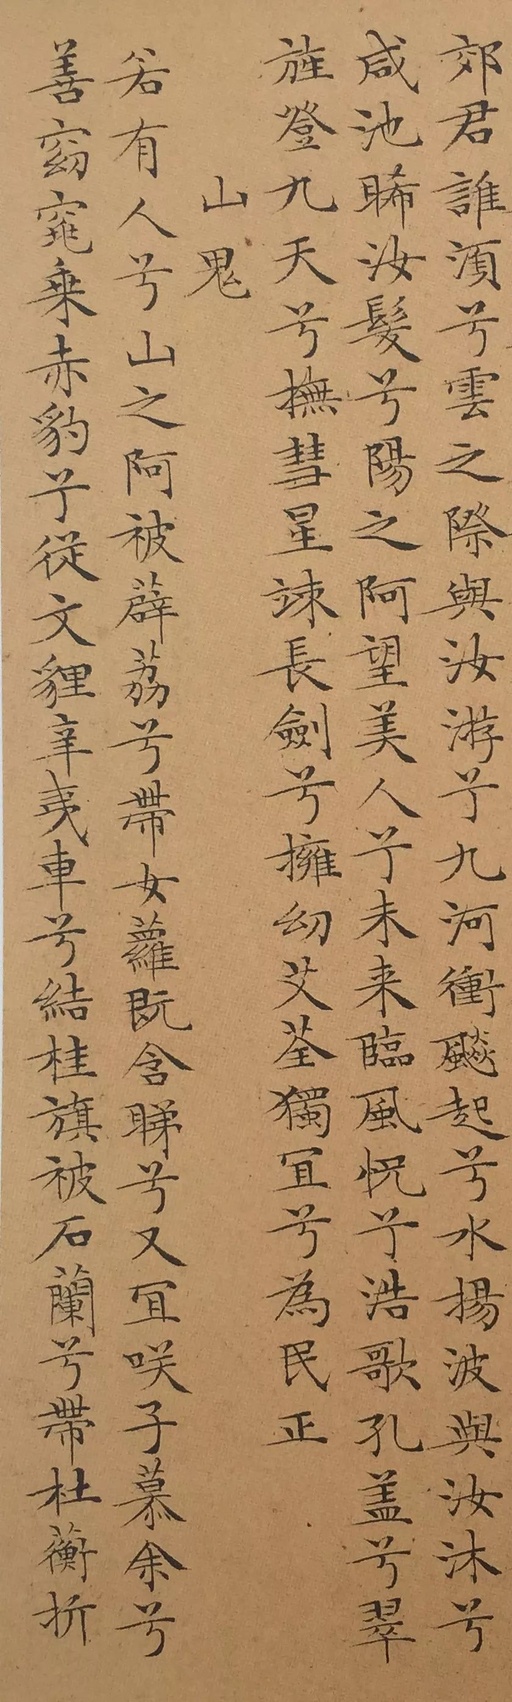 郊君誰須兮雲之際與汝游兮九河衝飈起兮水揚波與汝沐兮
咸池晞汝髮兮陽之阿望美人兮未来臨風怳兮浩歌孔盖兮翠
旌登九天兮撫彗星竦長劍兮擁幼艾荃獨冝兮為民正
山鬼
若有人兮山之阿被薜荔兮帶女蘿既含睇兮又冝咲子慕余兮
善窈窕乗赤豹兮従文貍辛夷車兮結桂旗被石蘭兮帶杜蘅折